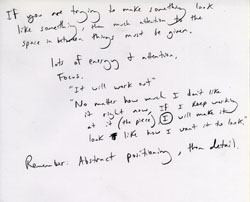 If you are trying to make something look
like something, then much attention to the
space in between things must be given.
lots of energy & attention.
Focus.
"It will work out"
"No matter how much I don't like
it right now, If I keep working
at it (the piece) I will make it
look like how I want it to look."
Remember: Abstract positioning, then detail.